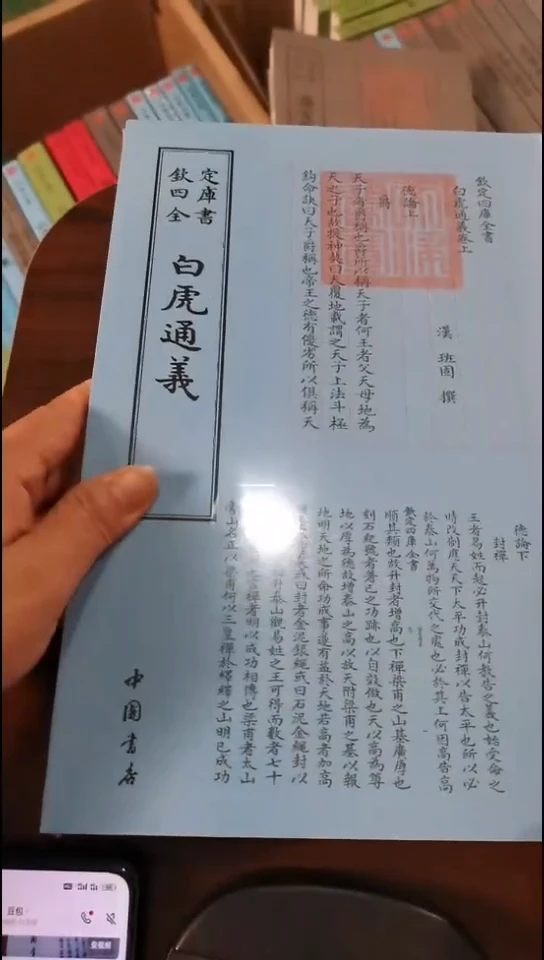 欽定
四庫
全書
白虎通義
中國書店
欽定四庫全書
白虎通義卷上
漢 班固 撰
德論上
爵
天子者爵稱也爵所以稱天子者何王者父天母地為
天之子也故援神契曰天覆地載謂之天子上法斗極
鈎命訣曰天子爵稱也帝王之德有優劣所以俱稱天
德論下
封禪
王者易姓而起必升封泰山何教告之義也始受命之
時改制應天天下太平功成封禪以告太平也所以必
於泰山何萬物所交代之處也必於其上何因高告高
欽定四庫全書
順其類也故升封者增高也下禪梁甫之山基廣厚也
刻石紀號者著已之功跡也以自效倣也天以高為尊
地以厚為德故增泰山之高以放天附梁甫之基以報
地明天地之所命功成事遂有益於天地若高者加高
或曰封者金泥銀繩或曰石泥金繩封以
升泰山觀易姓之王可得而數者七十
禪者明以成功相傳也梁甫者太山
旁山名正以梁甫何以三皇禪於繹繹之山明已成功
豆包